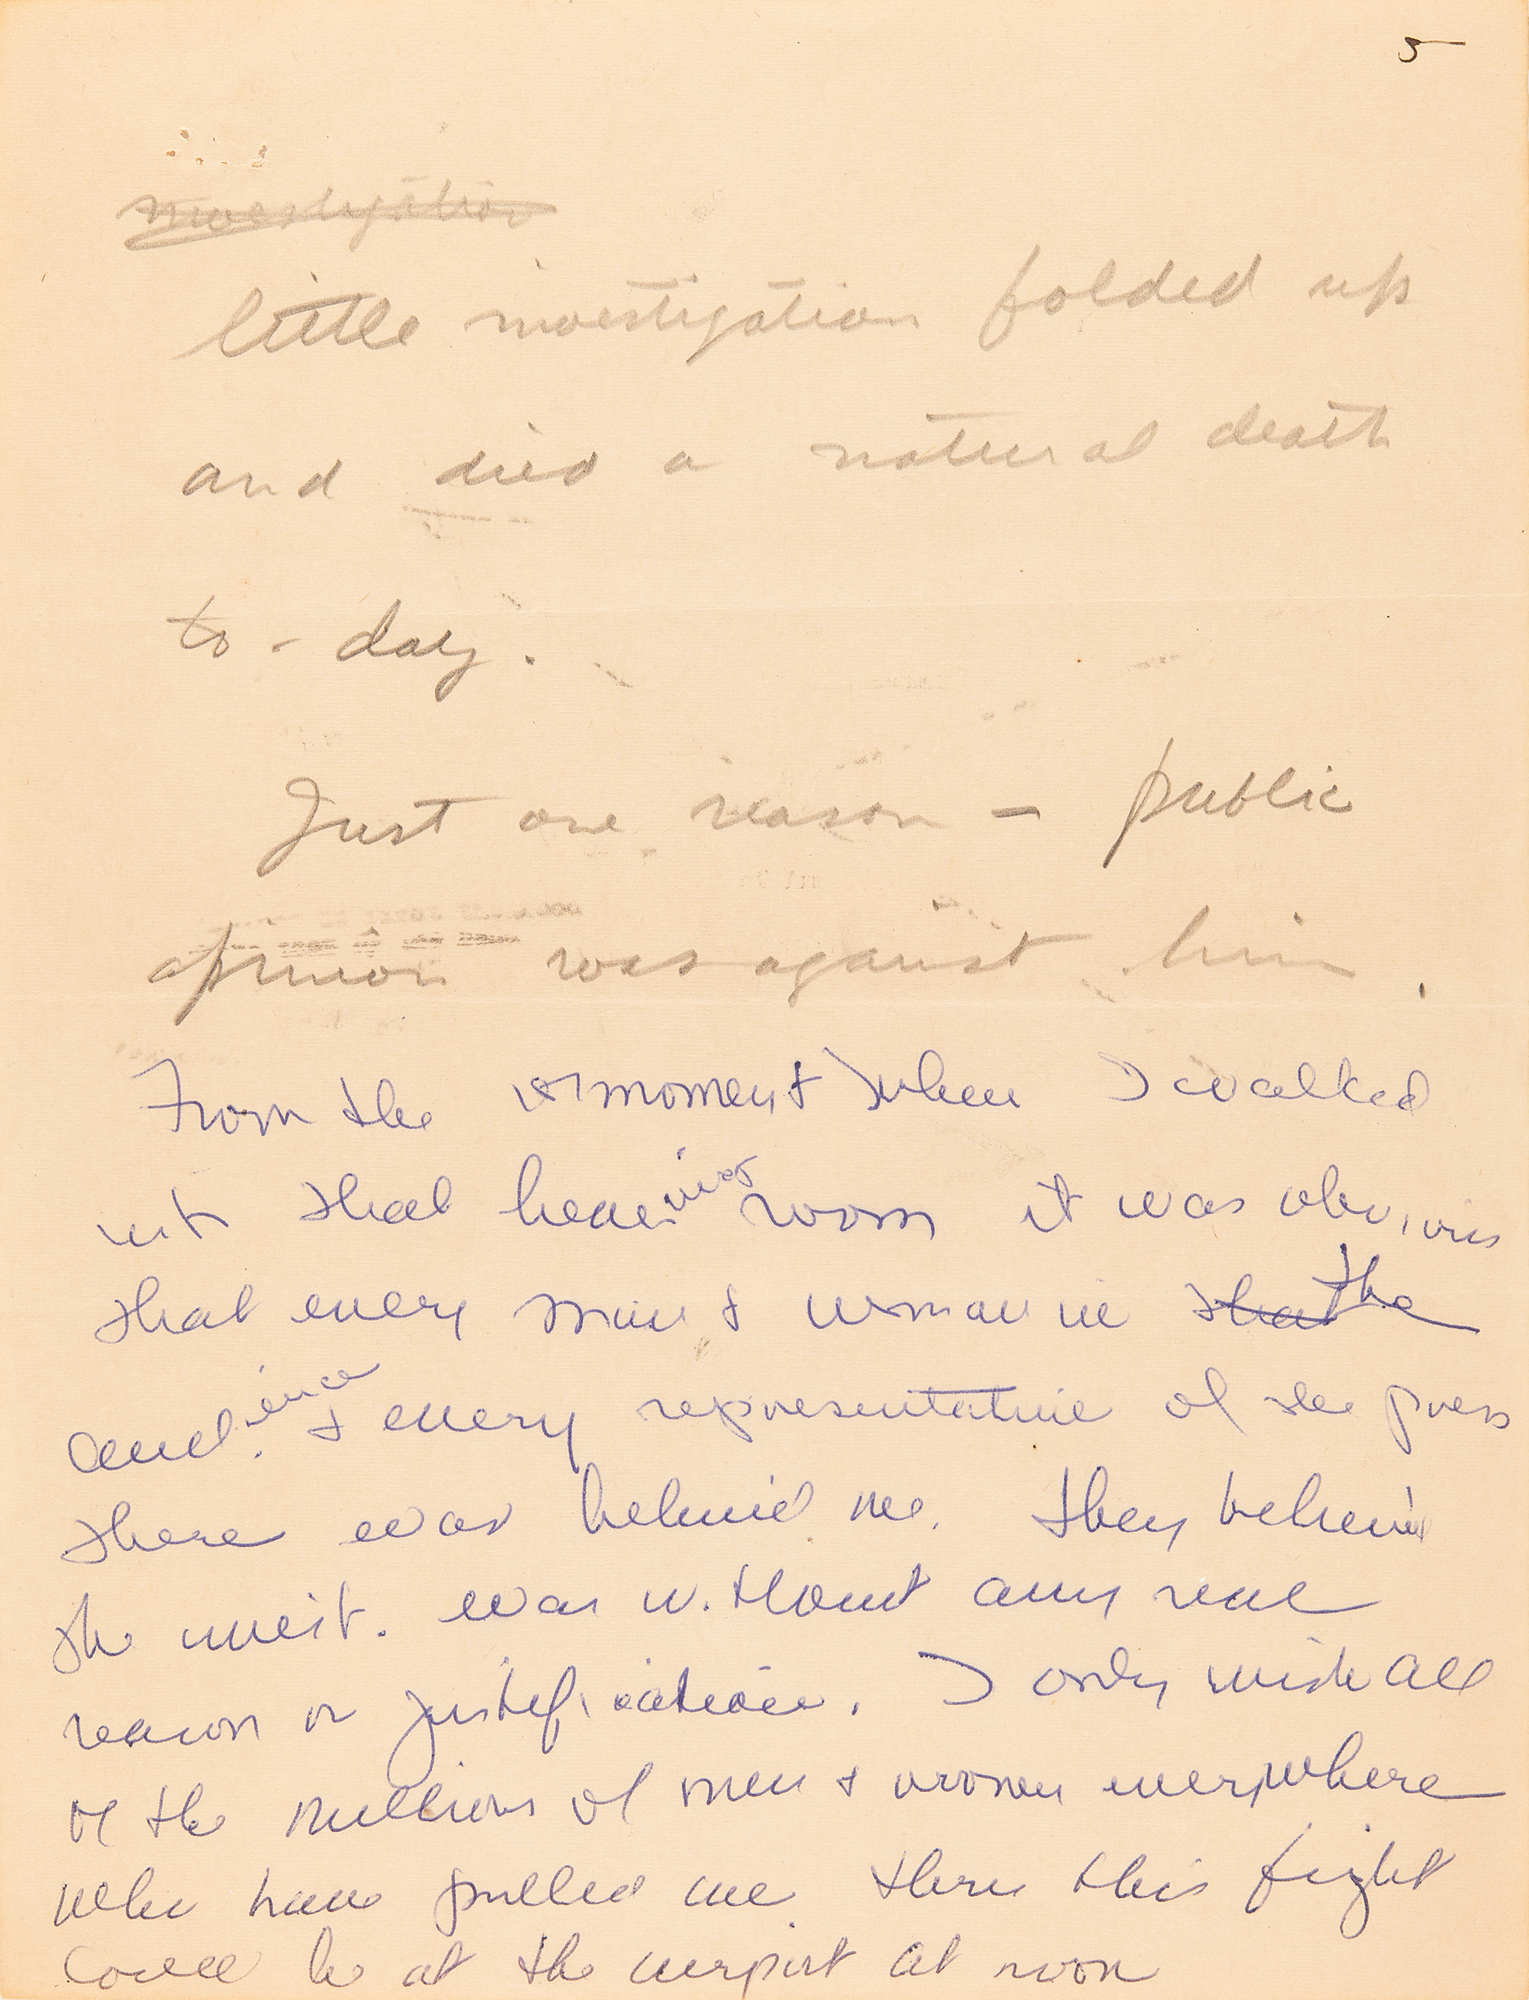 5
investigation
little investigation folded up
and died a natural death
to-day.
Just one reason - public
opinion was against him.
From the 1st moment when I walked
into that hearing room it was obvious
that every man & woman in that the
audience & every representative of the press
there was behind me. They believed
the invest. was without any real
reason or justification. I only wish all
of the millions of men & women everywhere
who have pulled me thru this fight
could be at the airport at noon